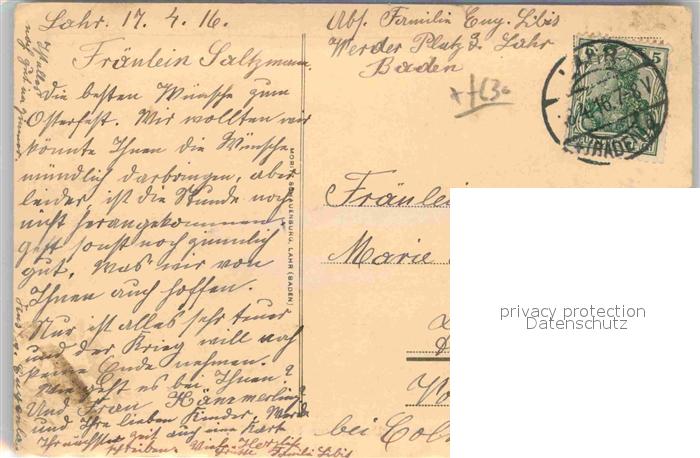 Lahr. 17. 4. 16.
Fräulein Saltzmann
Die besten Wünsche zum
Osterfest. Wir wollten wir
könnte Ihnen die Wünsche
mündlich darbringen, aber
leider, ist die Stunde noch
nicht herangekommen.
geht sonst noch zimmlich
gut, Was wir von
Ihnen auch hoffen.
Nur ist alles sehr teuer
und der Krieg will noch
keine Ende nehmen.
Wie geht es bei Ihnen?
Und Frau
und Ihre lieben Kinder. Werde
Ihr nächster Zeit auch eine Kart
schreiben. Viele Herzlich
Grüsse Familie Libis
Abs. Familie Eug. Libis
Werder Platz 3. Lahr
Baden
MORITZ SCHAUENBURG, LAHR (BADEN)
5
LAHR
(BADEN)
Fräulein
Marie
bei Col
privacy protection
Datenschutz